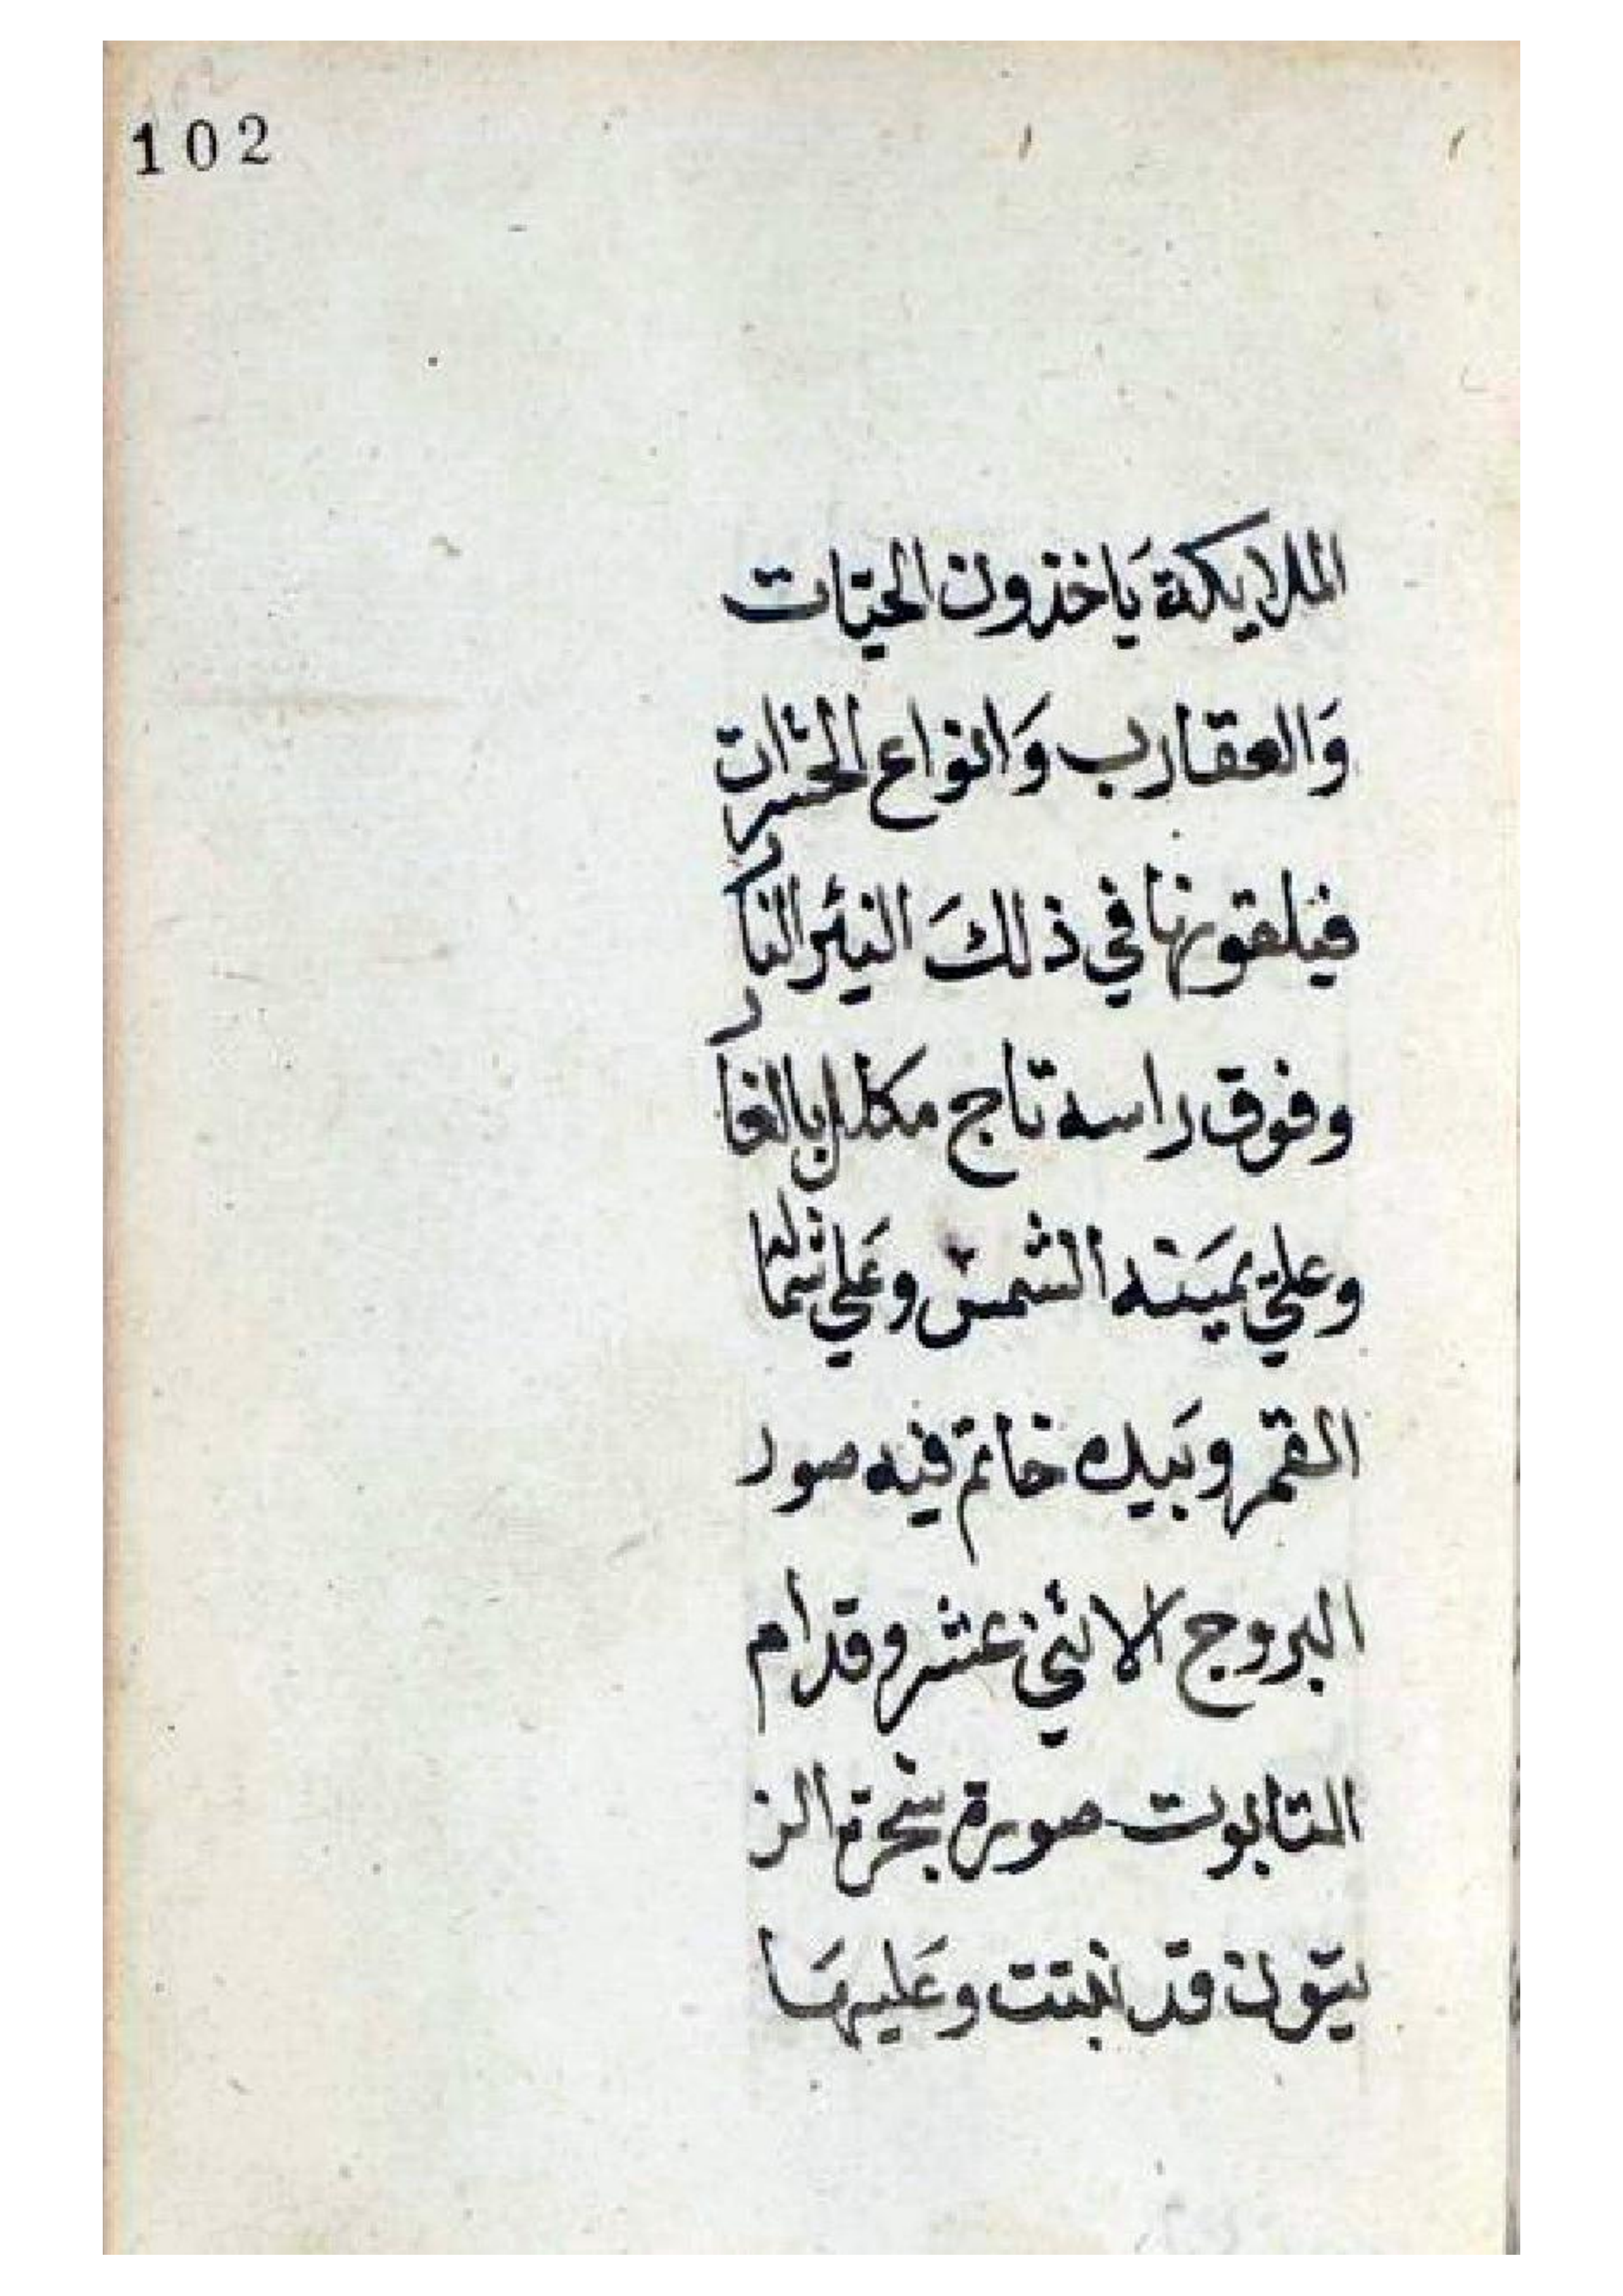 102
الملايكة يَاخذون الحيّات
وَالعقارب وَانواع الحشرات
فيلقونها في ذلكَ البئر النار
وفوق راسه تاج مكلل بالغار
وعلي يميَنه الشمس وعَلي شماله
القمر وبَيده خاتم فيه صور
البروج الاثني عشر وقدام
التابوت صورة شجرة الز
يتون قد نبتت وعَليهَا